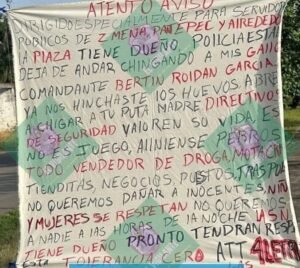 ATENTO AVISO
DIRIGIDO ESPECIALMENTE PARA SERVIDO
PUBLICOS DE Z MENA, PANTEPEL Y AIREDEDO
LA PLAZA TIENE DUEÑO, POLICIA ESTA
DEJA DE ANDAR CHINGANDO A MIS GALLO
COMANDANTE BERTIN ROLDAN GARCIA
YA NOS HINCHASTE LOS HUEVOS ABIRE
A CHIGAR A TU PUTA MADRE DIRECTIVOS
DE SEGURIDAD VALOREN SU VIDA, ES
NO ES JUEGO, ALINIENSE PERROS
TODO VENDEDOR DE DROGA, MOTA, CRI
TIENDITAS, NEGOCIOS P ESTOS, TRASPO
NO QUEREMOS DAÑAR A INOCENTES, NIÑ
Y MUJERES SE RESPETAN NO QUEREMOS
A NADIE A LAS HORAS DE LA NOCHE LAS N
TIENE DUEÑO PRONTO TENDRAN RESP
ESTA TOLERANCIA CERO ATT 4LETR